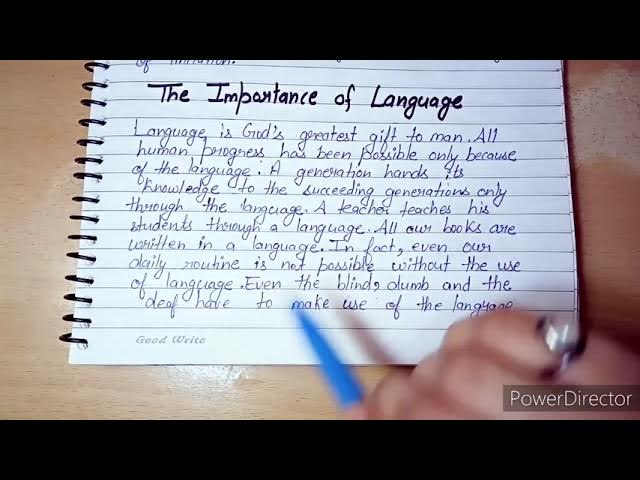 of limitation.
The Importance of Language
Language is God's greatest gift to man. All
human progress has been possible only because
of the language. A generation hands its
knowledge to the succeeding generations only
through the language. A teacher teaches his
students through a language. All our books are
written in a language. In fact, even our
daily routine is not possible without the use
of language. Even the blind, dumb and the
deaf have to make use of the language
Good Write
PowerDirector